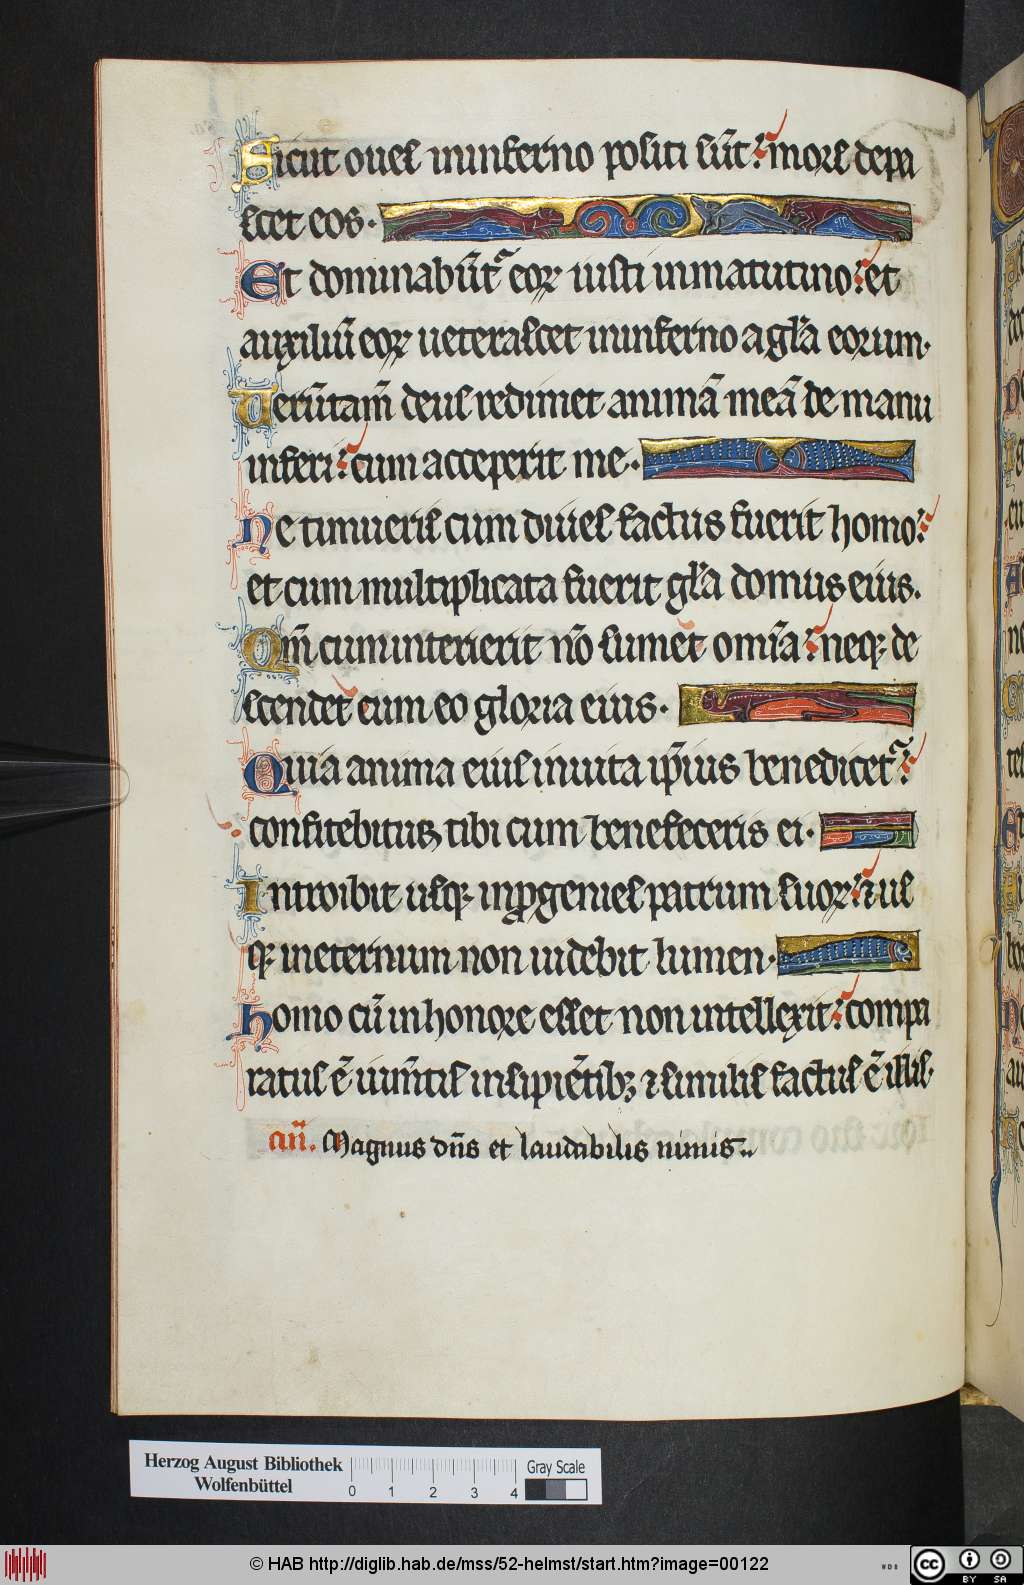 Sicut oues ininferno positi sūt: mors depa
scet eos.
Et dominabūt᷑ eoꝝ iusti inmatutino: et
auxiliū eoꝝ ueterascet ininferno a gl̄a eorum.
Uerūtam̄ deus redimet animā meā de manu
inferi: cum acceperit me.
Ne timueris cum diues factus fuerit homo:
et cum multiplicata fuerit gl̄a domus eius.
Qm̄ cum interierit nō sumet om̄ia: neqꝫ de
scendet cum eo gloria eius.
Quia anima eius inuita ip̄ius benedicet᷑:
confitebitur tibi cum benefeceris ei.
Introibit usqꝫ inꝓgenies patrum suoꝝ: ⁊ us
qꝫ ineternum non uidebit lumen.
Homo cū inhonore esset non intellexit: compa
ratus ē iumētis insipiētibꝫ ⁊ similis factus ē illis.
añ. Magnus dn̄s et laudabilis nimis.
Herzog August Bibliothek
Wolfenbüttel
0 1 2 3 4
Gray Scale
© HAB http://diglib.hab.de/mss/52-helmst/start.htm?image=00122
WDB
cc BY SA